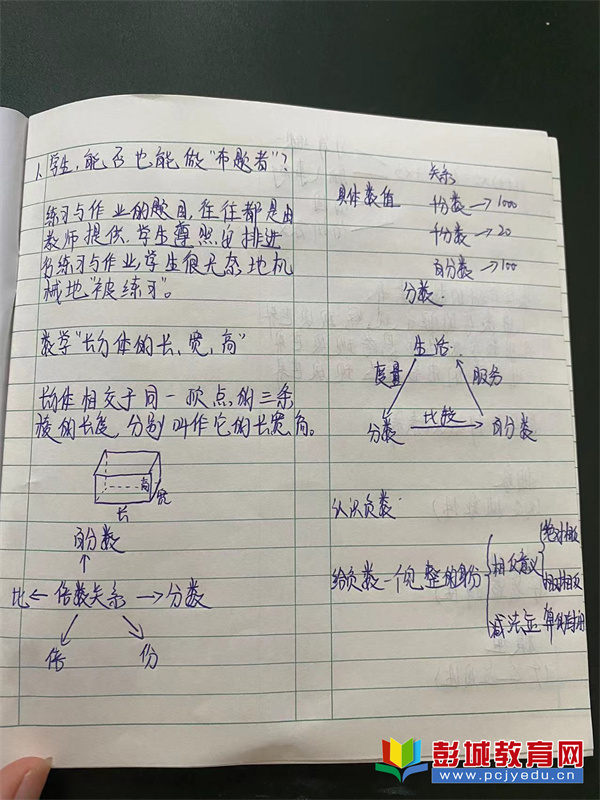 1、学生,能否也能做"布题者"?
练习与作业的题目,往往都是由
教师提供,学生遵照安排进
行练习与作业,学生很无奈地机
械地"被练习"。
教学"长方体的长、宽、高"
长方体相交于同一顶点的三条
棱的长度,分别叫作它的长宽高。
高
宽
长
百分数
比 ← 倍数关系 → 分数
倍 份
关系
具体数值
十分数 → 1000
千分数 → 20
百分数 → 100
分数.
生活.
度量 服务
分数 比较 百分数.
认识负数.
给负数一个完整的身份
相反意义
绝对相反
相对相反
减法运算的封闭
彭城教育网
www.pcjyedu.cn